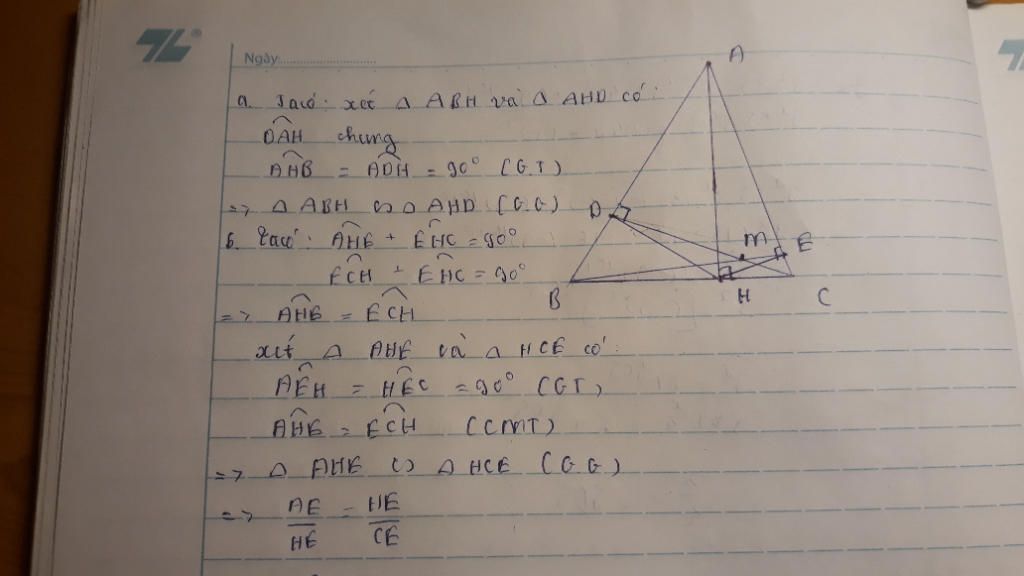 Ngày
a. Tacó: xét Δ ABH và Δ AHD có:
DAH chung
AHB = ADH = 90° (G.T)
=> Δ ABH ∽ Δ AHD (G.G)
b. Tacó: AHE + EHC = 90°
ECH + EHC = 90°
=> AHE = ECH
xét Δ AHE và Δ HCE có:
AEH = HEC = 90° (GT)
AHE = ECH (CMT)
=> Δ AHE ∽ Δ HCE (G.G)
=> AE/HE = HE/CE
A
D
M
E
B
H
C